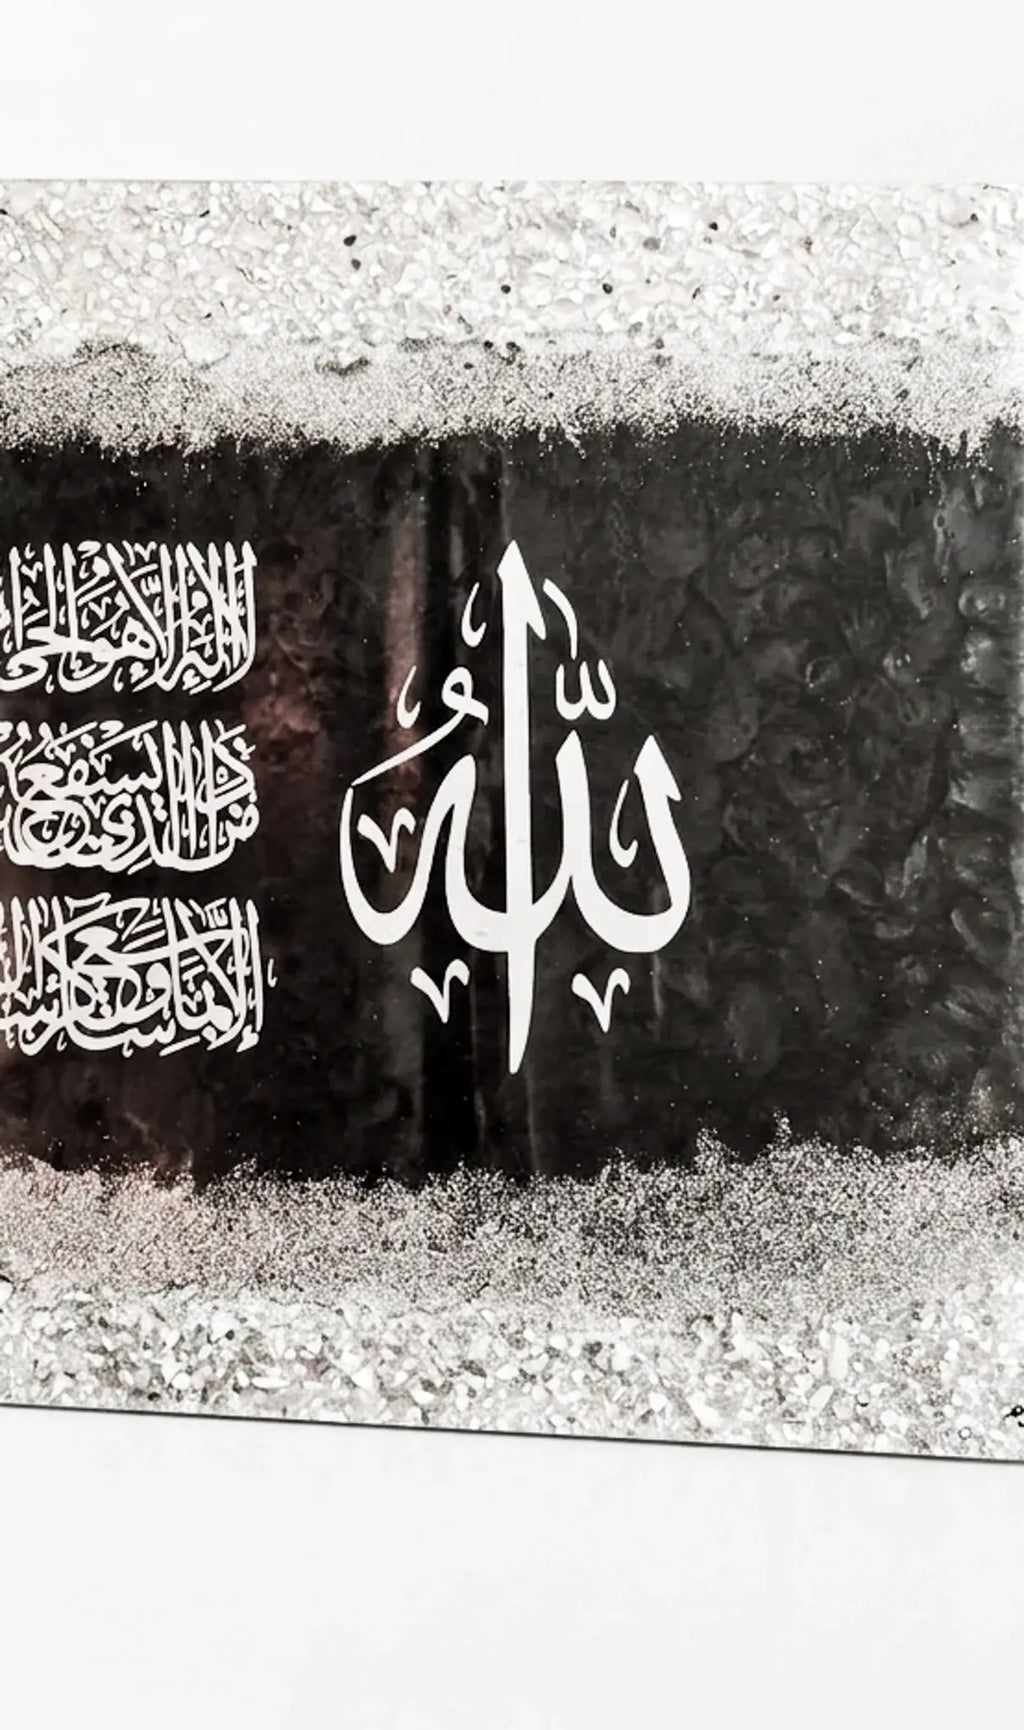 الله
لا إله إلا هو الحي
من ذا الذي يشفع
إلا بما شاء وسع كرسيه